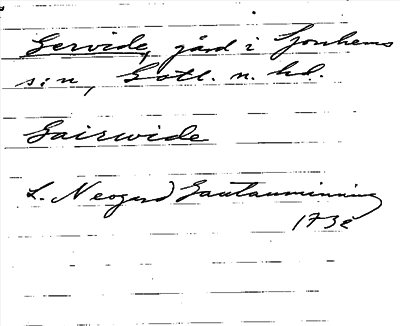 Gervide, gård i Sjonhems
s:n, Gotl. n. hd.
Gairwide
L. Neogard Gautauminning
1732